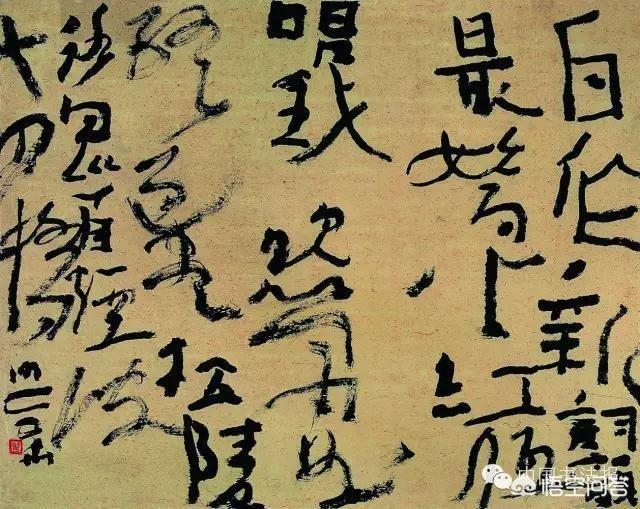 自作新詞韻
最嬌小紅低
唱我吹簫曲
終過盡松陵
路回首煙波
十四橋
中国书法报
悟空问答